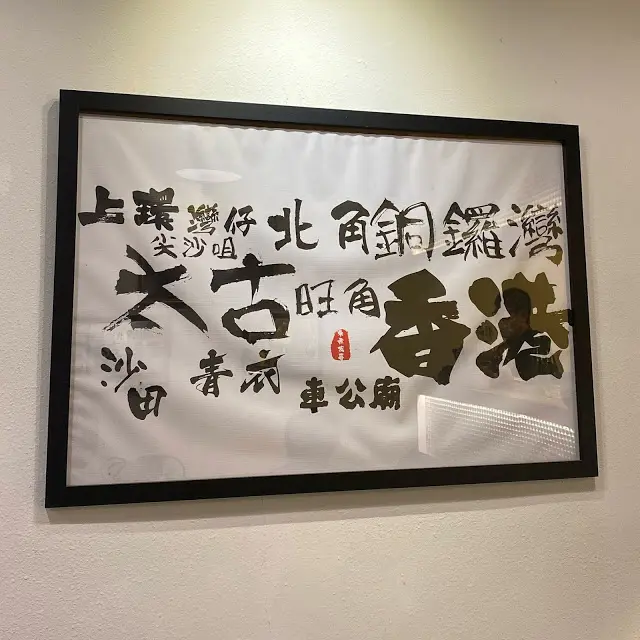 上環 灣仔 北角 銅鑼灣
尖沙咀
太古 旺角 香港
沙田 青衣 車公廟